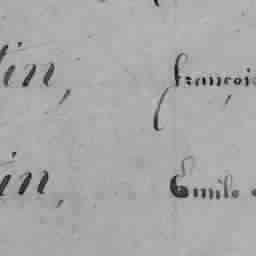 tin, françois
in, Emile